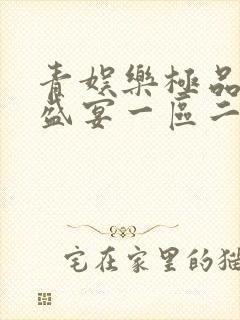 青娱樂極品
盛宴一區二
宅在家里的猫